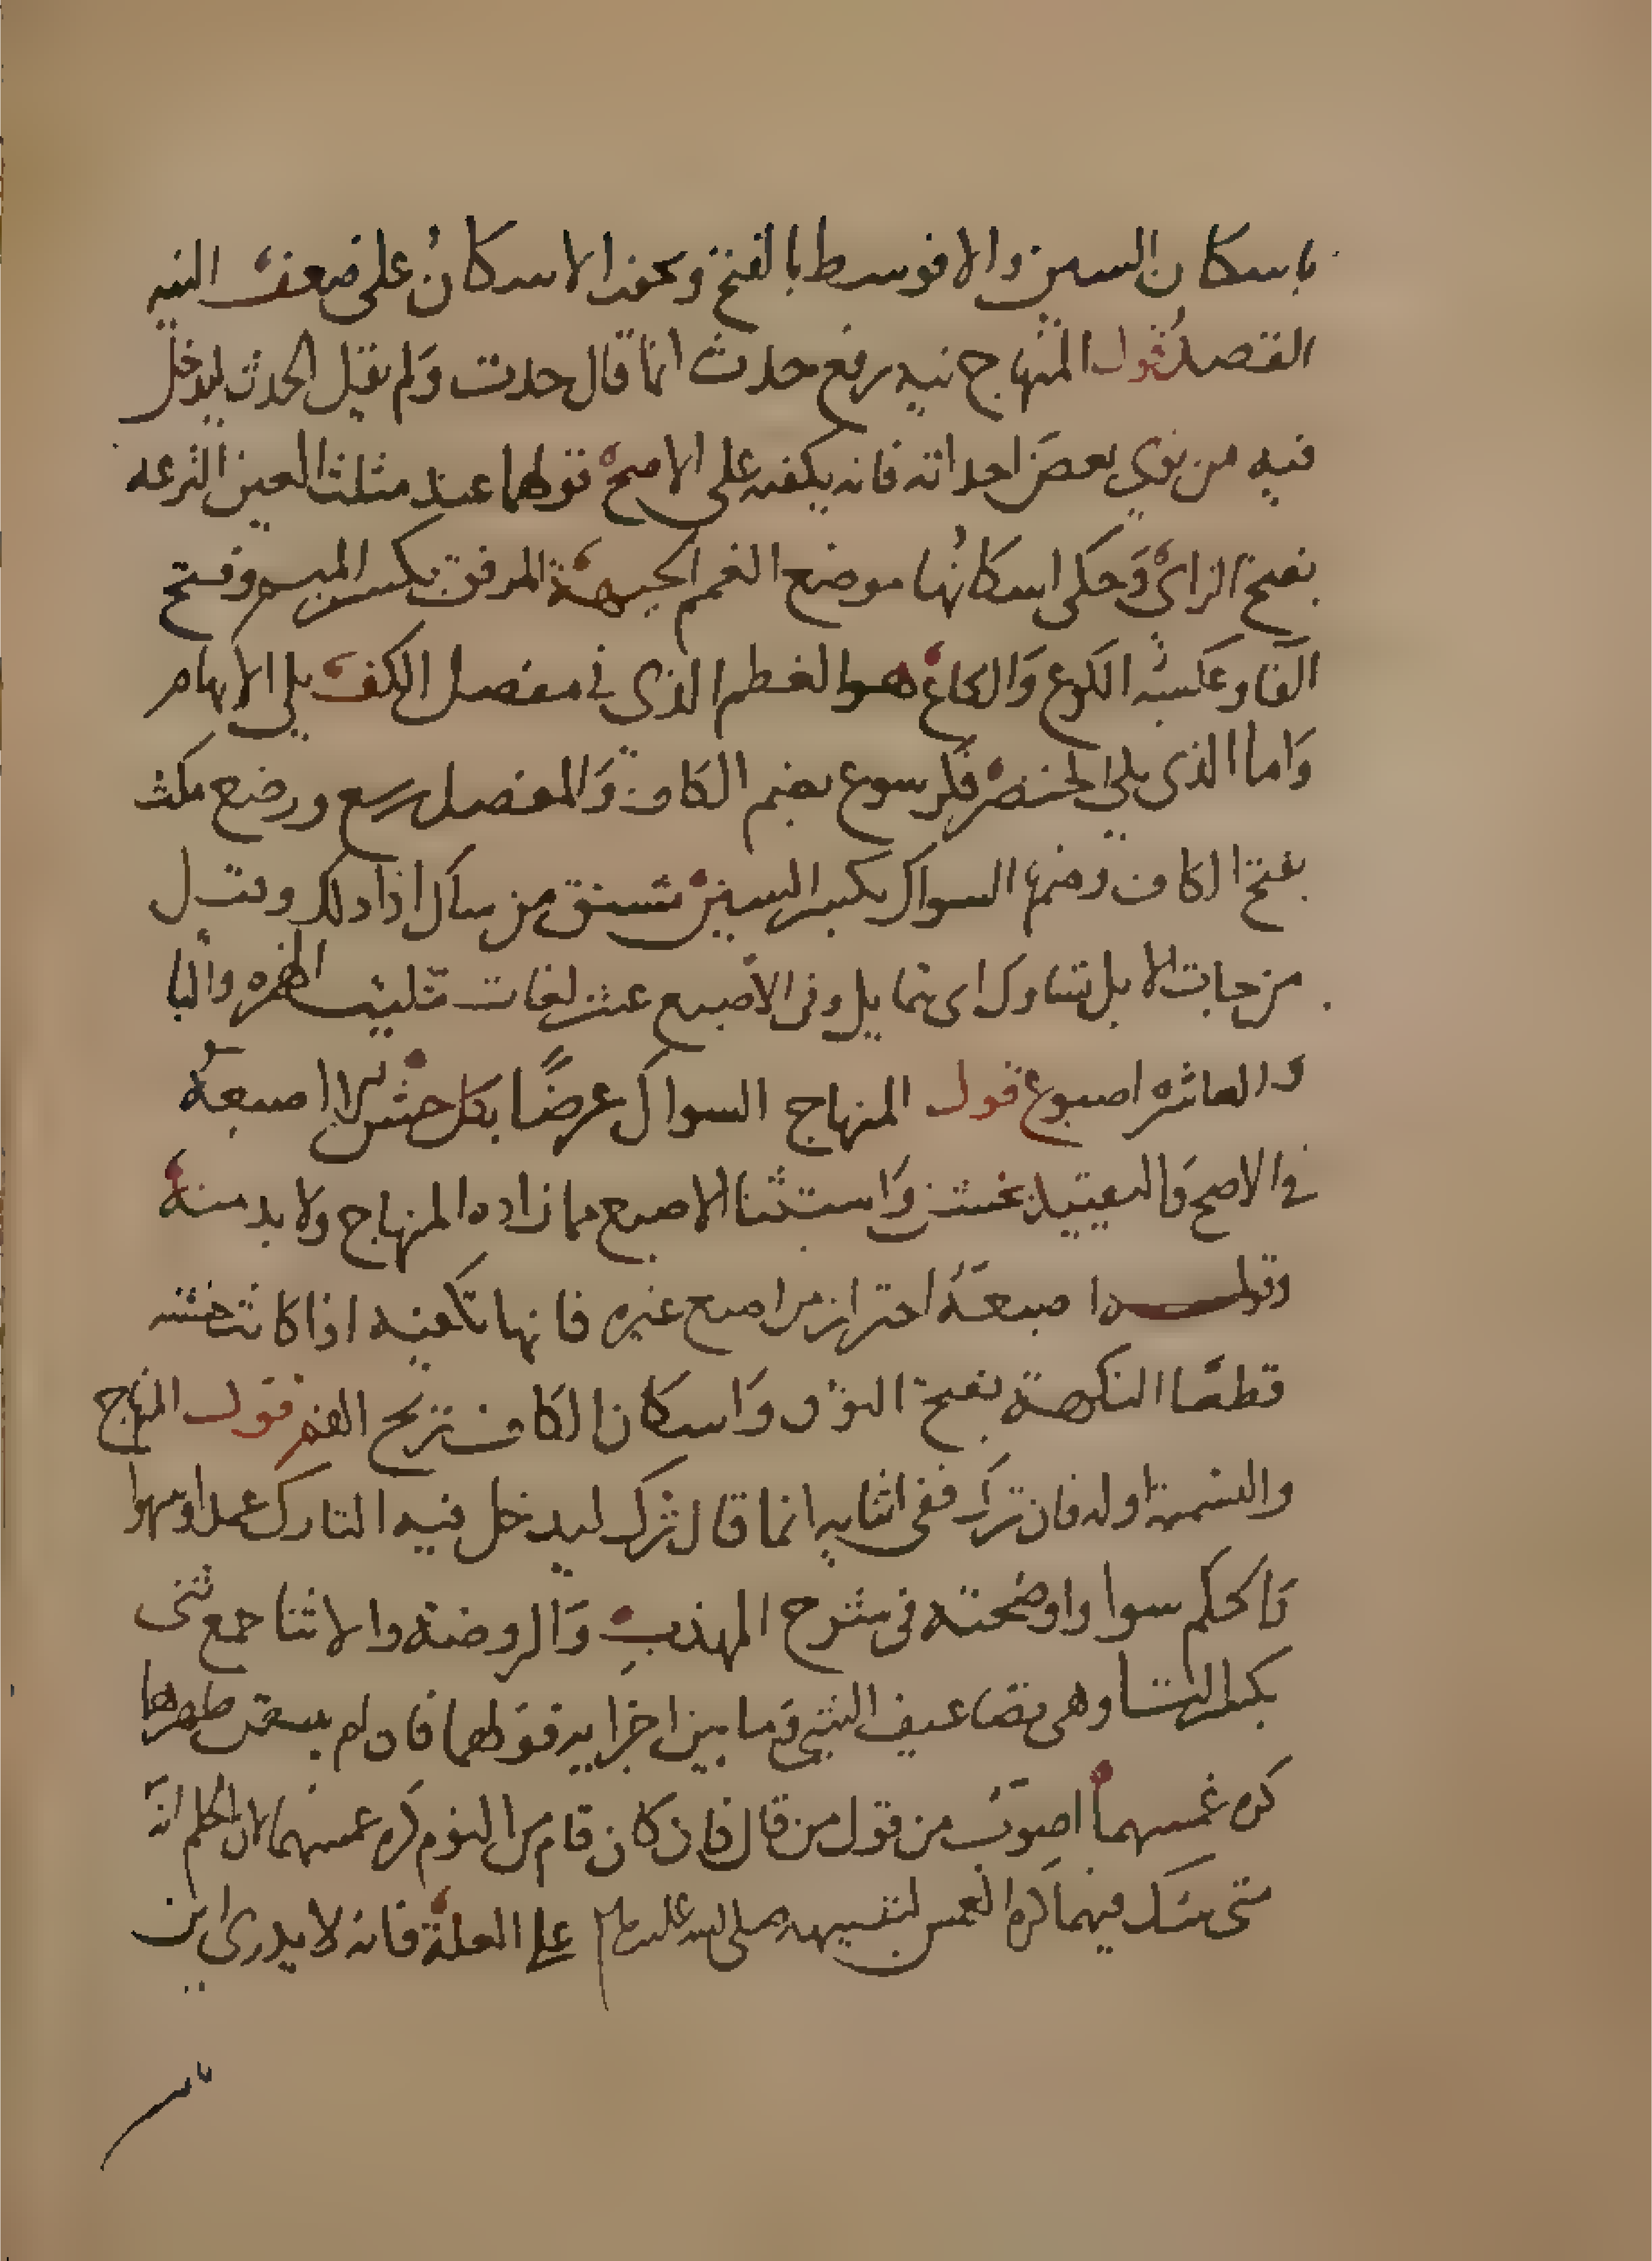 باسكان السين والا فوسط بالفتح ويجوز الاسكان على ضعف النيه
القصد قول المنهاج نيه رفع حدث انما قال حدث ولم يقل الحدث ليدخل
فيه من نوى بعض احداثه فانه يكفيه على الاصح قولهما عند مثلث العين النزعه
بفتح الزاى وحكى اسكانها موضع الغمم الجبهة المرفق بكسر الميم وفتح
الفا وعكسه الكوع والكاع هو العظم الذى في مفصل الكف يلي الابهام
واما الذى يلي الخنصر فكرسوع بضم الكاف والمفصل رسغ ورصغ مكث
بفتح الكاف وضمها السواك بكسر السين مشتق من ساك اذا دلك وقيل
من جات الابل تتساوك اى تمايل وفى الاصبع عشر لغات تثليث الهمزه والبا
والعاشره اصبوع قول المنهاج السواك عرضا بكل خشن لا اصبعه
في الاصح فالتقييد بخشن واستثنا الاصبع مما زاده المنهاج ولا بد منه
وقوله اصبعه احتراز من اصبع غيره فانها تكفيه اذا كانت خشنه
قطعا النكهة بفتح النون واسكان الكاف ريح الفم قول المنهاج
والتسمية اوله فان ترك ففي اثنايه انما قال ترك ليدخل فيه التارك عمدا وسهوا
فالحكم سوا واوضحته فى شرح المهذب والروضة والاثنا جمع ثنى
بكسر الثا وهى تضاعيف الشي وما بين اجزايه قولهما فان لم يتيقن طهرهما
كره غمسهما اصوب من قول من قال فان كان قام من النوم كره غمسهما لان الحكم انه
متى شك فيهما كره الغمس لتنبيهه صلى الله عليه وسلم على العلة فانه لا يدرى اين